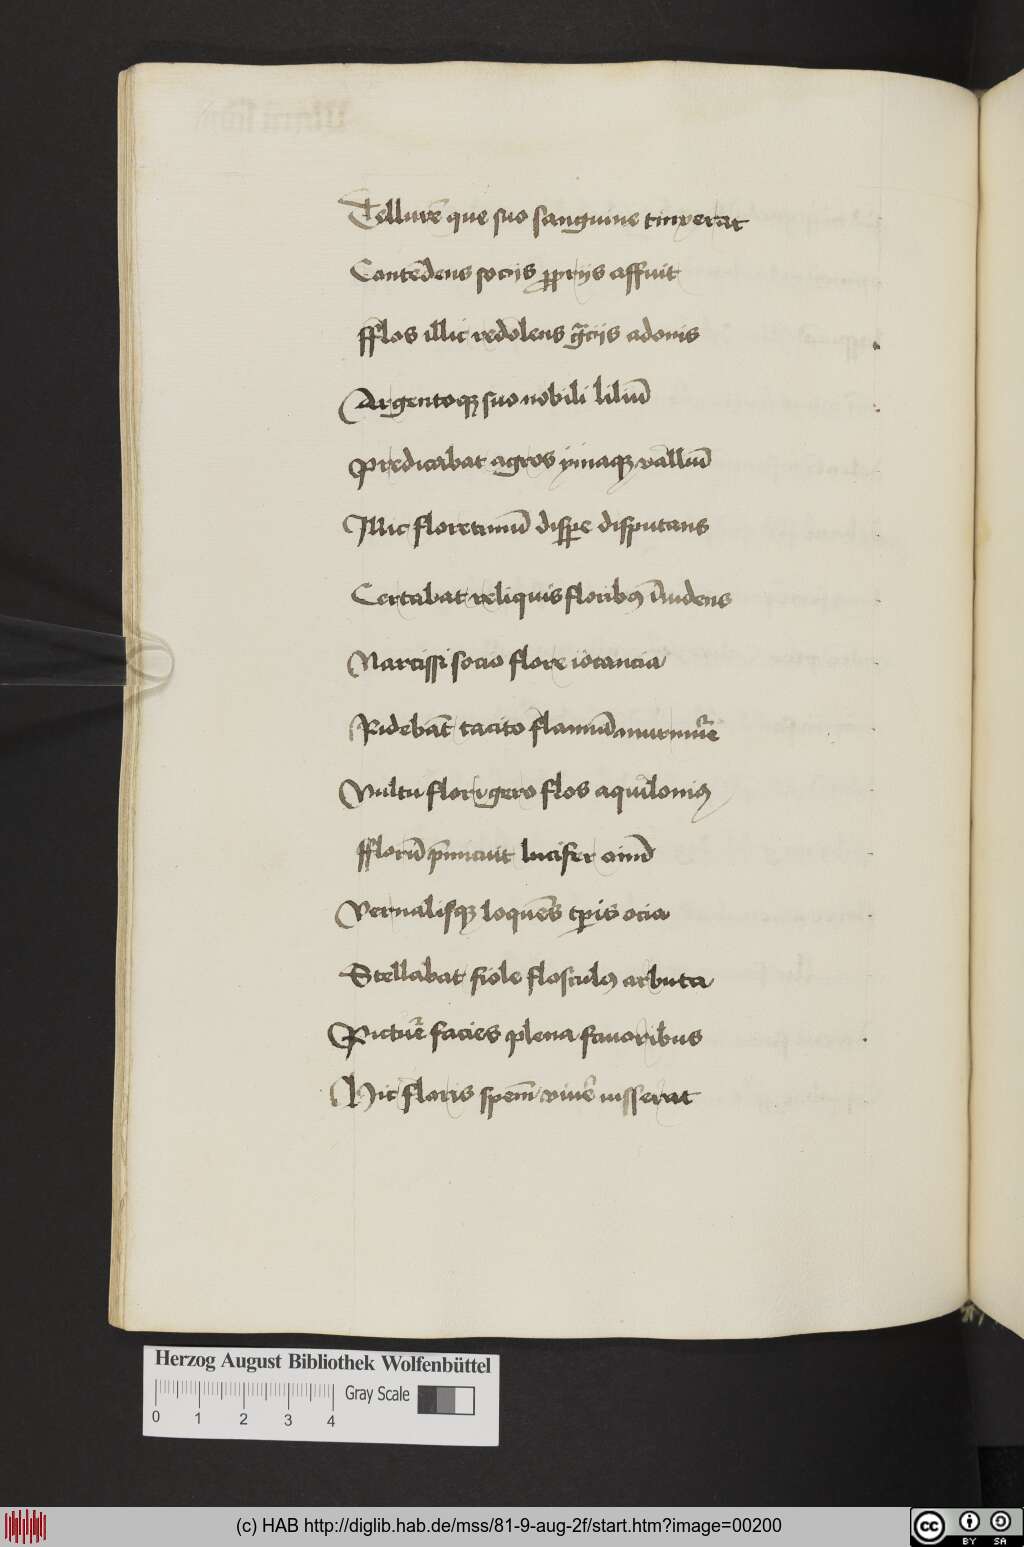 Tellurē que suo sanguine tinxerat
Contēdens socijs ꝓprijs affuit
fflos illic redolens gr̄cijs adonis
Argentoqꝫ suo nobili liliū
Predicabat agros ymaqꝫ valliū
Illic floretinuū disꝑe disputans
Certabat reliquis floribꝰ īuidens
Narcissi socio flore iocancia
Ridebāt tacito flaminū murmur̄e
Vultu florigero flos aquilonius
fflorū lucifer oīniū
Vernalisqꝫ loquēs tp̄is ocia
Stellabat fiole flosculꝰ arbuta
Pictur̄e facies plena fauoribus
Hic floris spem viuē iusserat
Herzog August Bibliothek Wolfenbüttel
Gray Scale
0 1 2 3 4
(c) HAB http://diglib.hab.de/mss/81-9-aug-2f/start.htm?image=00200
cc BY SA